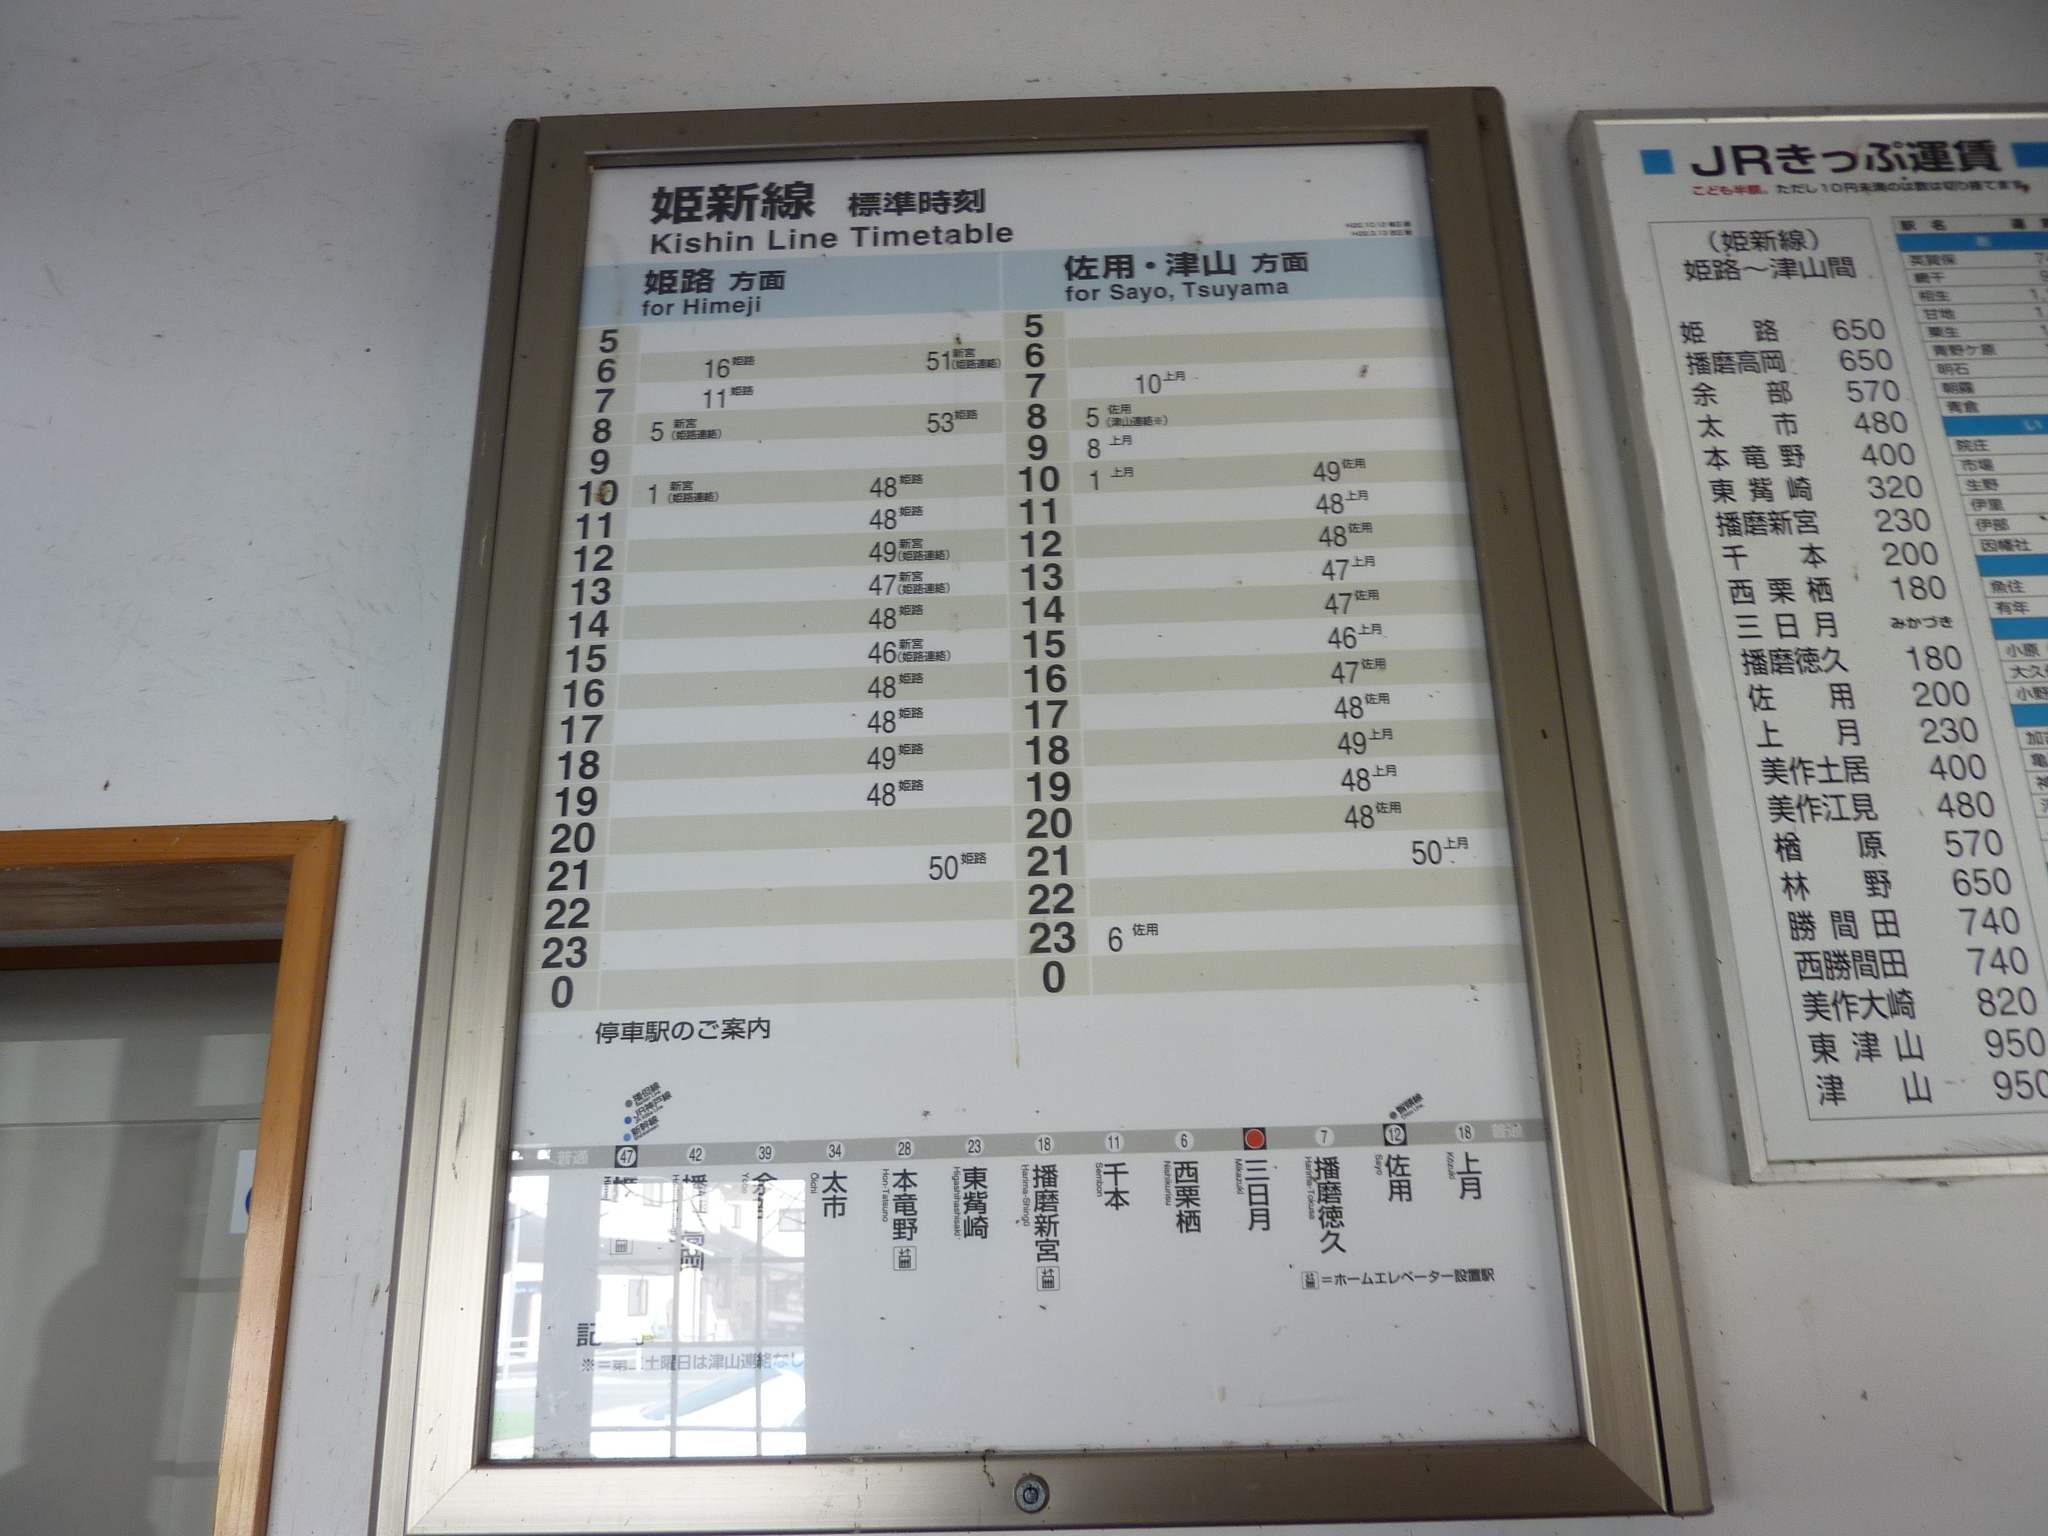 姫新線 標準時刻
Kishin Line Timetable
姫路 方面
for Himeji
佐用・津山 方面
for Sayo, Tsuyama
5
6 16姫路 51新宮(姫路連絡)
7 11姫路
8 5新宮(姫路連絡) 53姫路
9
10 1新宮(姫路連絡) 48姫路
11 48姫路
12 49新宮(姫路連絡)
13 47新宮(姫路連絡)
14 48姫路
15 46新宮(姫路連絡)
16 48姫路
17 48姫路
18 49姫路
19 48姫路
20
21 50姫路
22
23
0
5
6
7 10上月
8 5佐用(津山連絡※)
9 8上月
10 1上月 49佐用
11 48上月
12 48佐用
13 47上月
14 47佐用
15 46上月
16 47佐用
17 48佐用
18 49上月
19 48上月
20 48佐用
21 50上月
22
23 6佐用
0
停車駅のご案内
播但線
JR神戸線
新幹線
智頭線
普通 47 42 39 34 28 23 18 11 6 7 12 18 普通
太市
Oichi
本竜野
Hon-Tatsuno
東觜崎
Higashihashisaki
播磨新宮
Harima-Shingū
千本
Sembon
西栗栖
Nishikurisu
三日月
Mikazuki
播磨徳久
Harima-Tokusa
佐用
Sayo
上月
Kōzuki
=ホームエレベーター設置駅
※=第二土曜日は津山連絡なし
JRきっぷ運賃
こども半額。ただし10円未満のは数は切り捨てます。
(姫新線)
姫路〜津山間
姫路 650
播磨高岡 650
余部 570
太市 480
本竜野 400
東觜崎 320
播磨新宮 230
千本 200
西栗栖 180
三日月 みかづき
播磨徳久 180
佐用 200
上月 230
美作土居 400
美作江見 480
楢原 570
林野 650
勝間田 740
西勝間田 740
美作大崎 820
東津山 950
津山 950
駅名
あ
英賀保
網干
相生
甘地
粟生
青野ケ原
明石
朝霧
青倉
い
院庄
市場
生野
伊里
伊部
因幡社
魚住
有年
小原